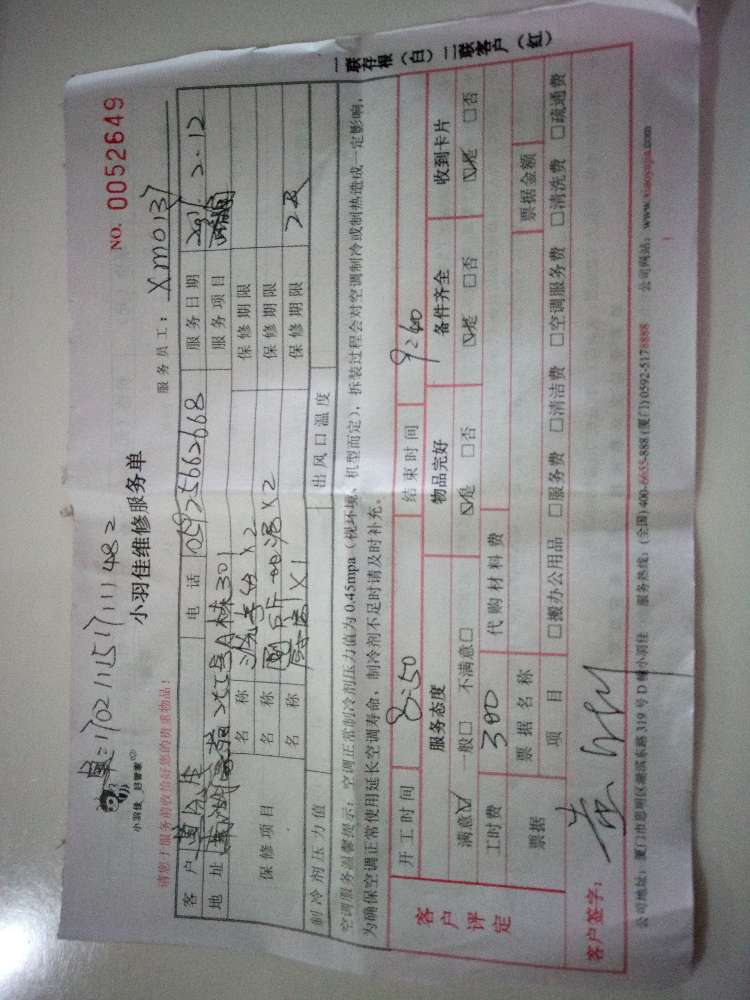 单:170211151711482
NO. 0052649
小羽佳 好管家
小羽佳维修服务单
服务员工: XM0137
请您于服务前收拾好您的贵重物品!
客户 电话 05925662668 服务日期 2.12
地址 301 服务项目
保修项目 名称 ×2 保修期限
名称 ×2 保修期限
名称 ×1 保修期限
制冷剂压力值 出风口温度
空调服务温馨提示:空调正常制冷剂压力值为0.45mpa(视环境、机型而定),拆装过程会对空调制冷或制热造成一定影响,
为确保空调正常使用延长空调寿命,制冷剂不足时请及时补充。
一联存根(白)二联客户(红)
客户评定
开工时间 8:50 结束时间 9:40
服务态度 物品完好 备件齐全 收到卡片
满意☑ 一般□ 不满意□ ☑是 □否 ☑是 □否 ☑是 □否
工时费 300 代购材料费
票据 票据名称 票据金额
项目 □搬办公用品 □服务费 □清洁费 □空调服务费 □清洗费 □疏通费
客户签字:
公司地址:厦门市思明区湖滨东路319号D幢小羽佳 服务热线:(全国)400-6655-888 (厦门)0592-5178888 公司网站:www.xiaoyujia.com